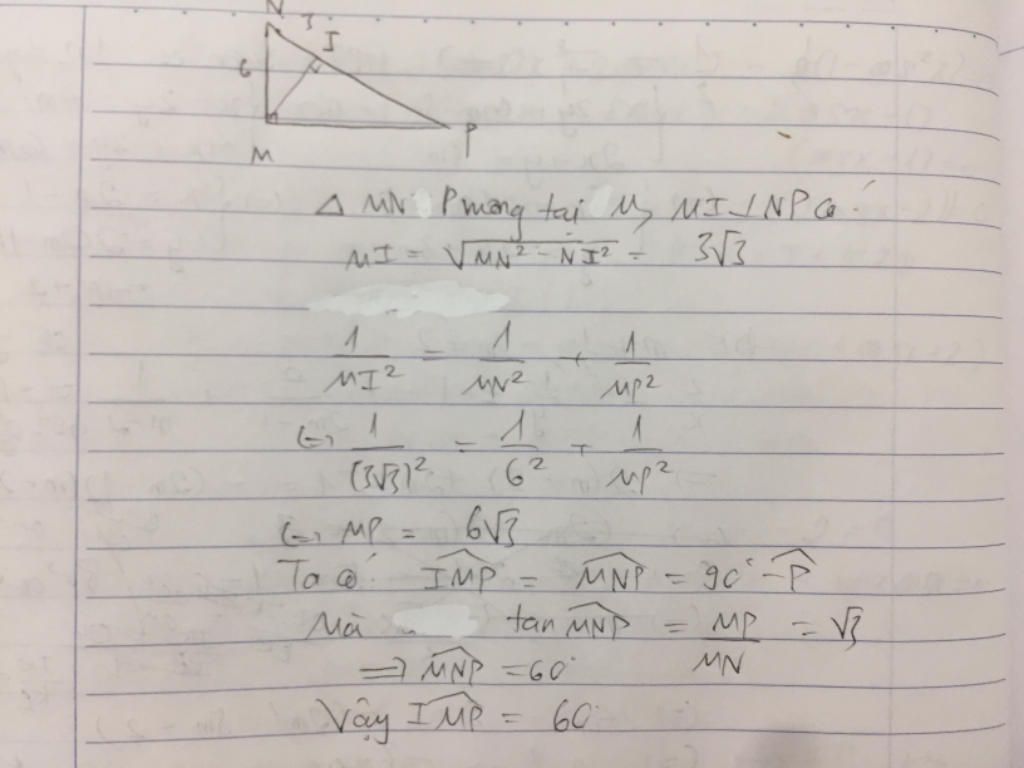 N
3
I
6
P
M
Δ MNP vuông tại M, MI ⊥ NP có:
MI = √(MN² - NI²) = 3√3
1/MI² = 1/MN² + 1/MP²
⇔ 1/(3√3)² = 1/6² + 1/MP²
⇔ MP = 6√3
Ta có: IMP = MNP = 90° - P
Mà tan MNP = MP/MN = √3
⇒ MNP = 60°
Vậy IMP = 60°